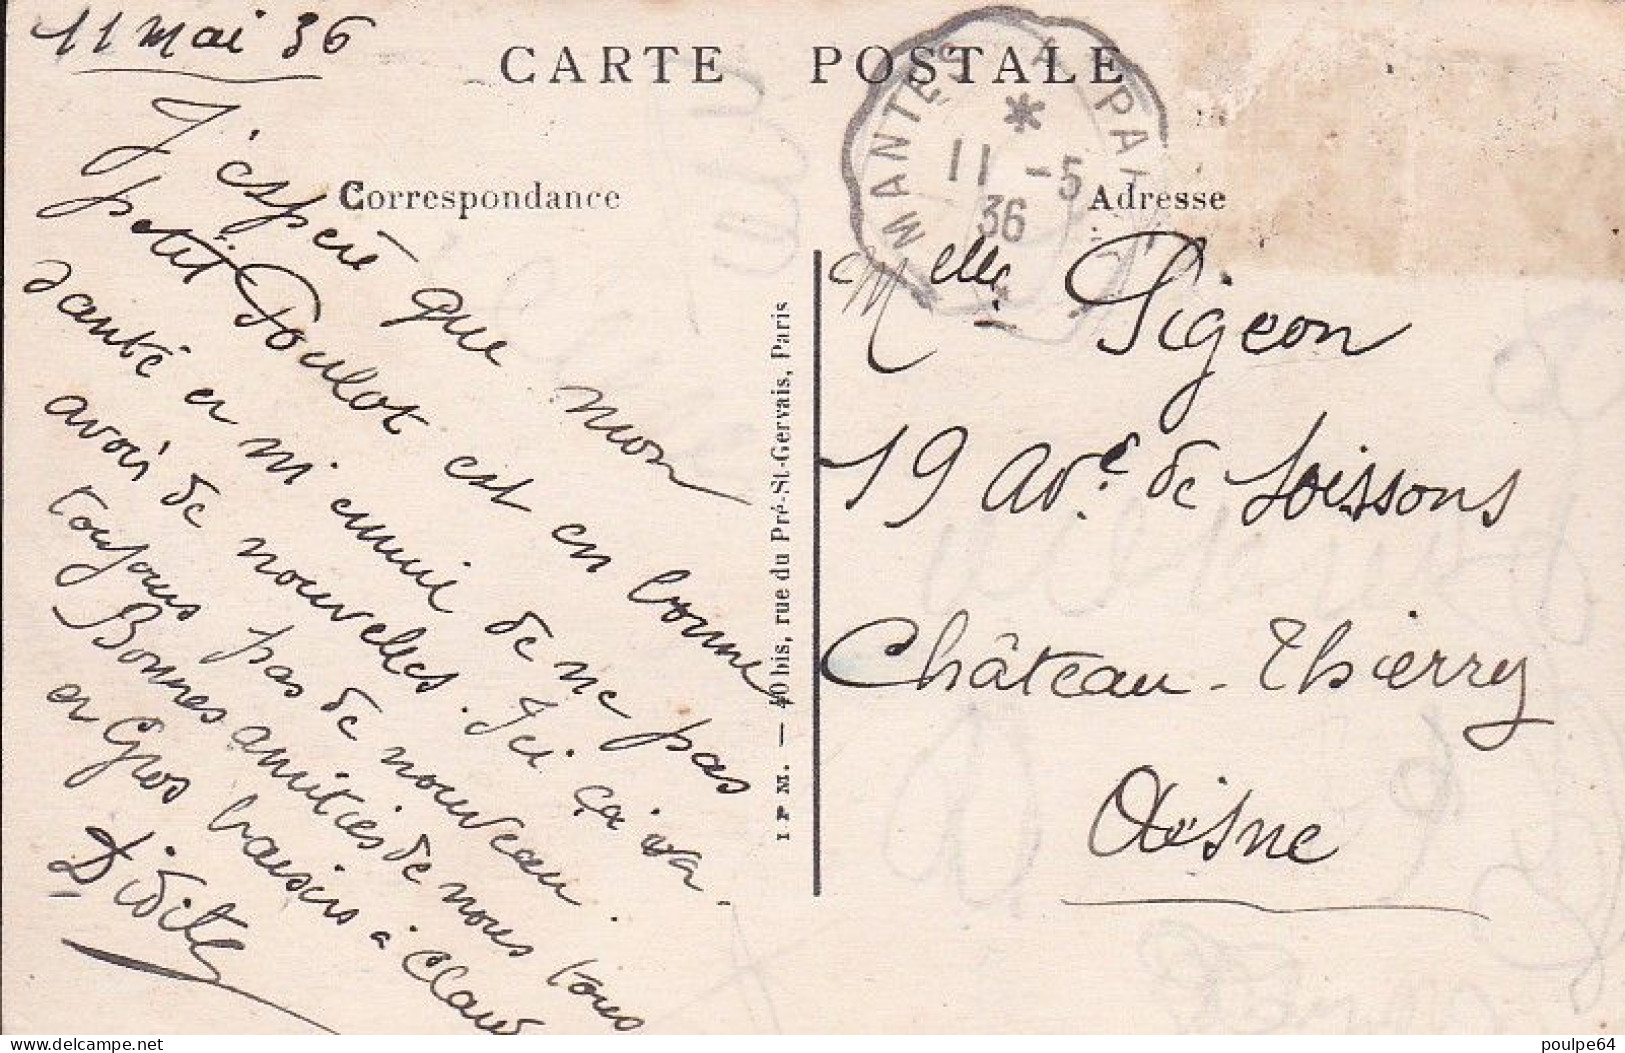 11 mai 36
CARTE POSTALE
Correspondance
Adresse
MANTES A PARIS
11 -5
36
J'espère que mon
petit Poulot est en bonne
santé et m'ennui de ne pas
avoir de nouvelles. Ici ça va.
toujours pas de nouveau.
Bonnes amitiés de nous tous
et Gros baisers à Claud
Didite
I P M. — 40 bis, rue du Pré-St-Gervais, Paris
Melle Pigeon
19 Ave de Soissons
Château-Thierry
Aisne
delcampe.net
poulpe64